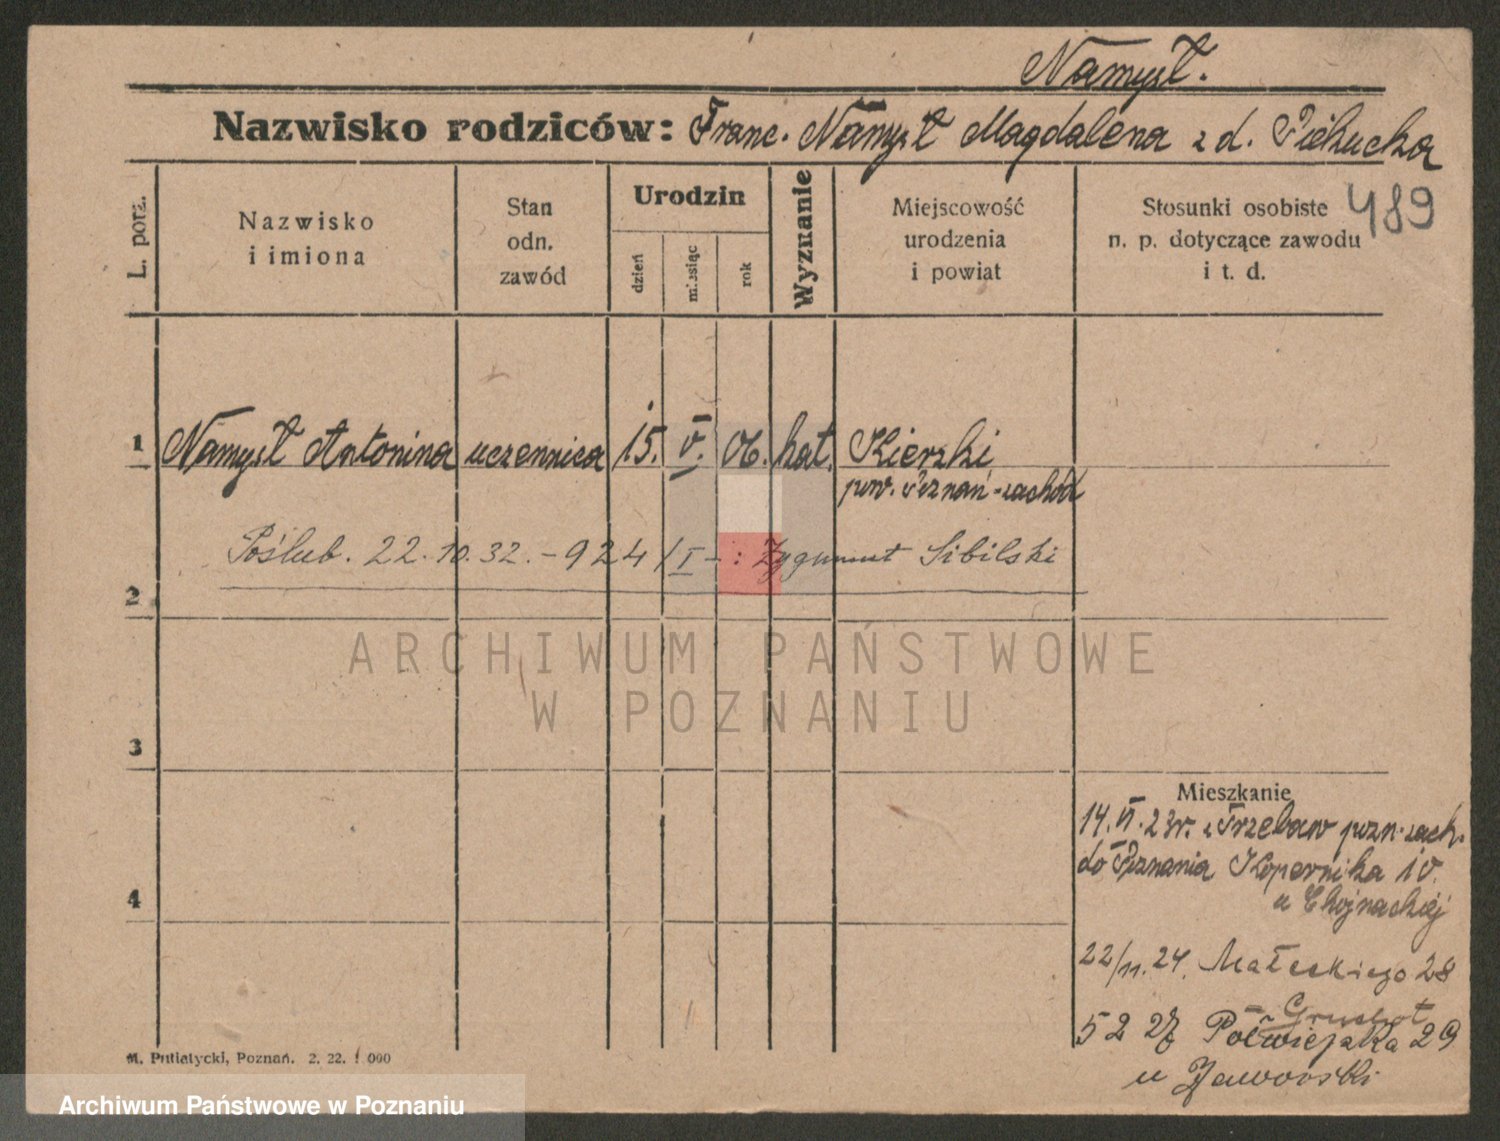 Namysł.
Nazwisko rodziców: Franc. Namysł Magdalena z d. Piekucka
489
L. porz.
Nazwisko
i imiona
Stan
odn.
zawód
Urodzin
dzień
miesiąc
rok
Wyznanie
Miejscowość
urodzenia
i powiat
Stosunki osobiste
n. p. dotyczące zawodu
i t. d.
1 Namysł Antonina uczennica 15. V. 06. kat. Kierski
pow. Poznań-zachód
Poślub. 22.10.32. - 924/I - : Zygmunt Sibilski
2
ARCHIWUM PAŃSTWOWE
W POZNANIU
3
Mieszkanie
14.VI.23r. z Trzebaw pozn-zach.
do Poznania Kopernika 10.
4
u Chojnackiej
22/11.24. Małeckiego 28
Gruchot
5 2 27 Półwiejska 29
u Jaworski
M. Putiatycki, Poznań. 2. 22. 1 000
Archiwum Państwowe w Poznaniu